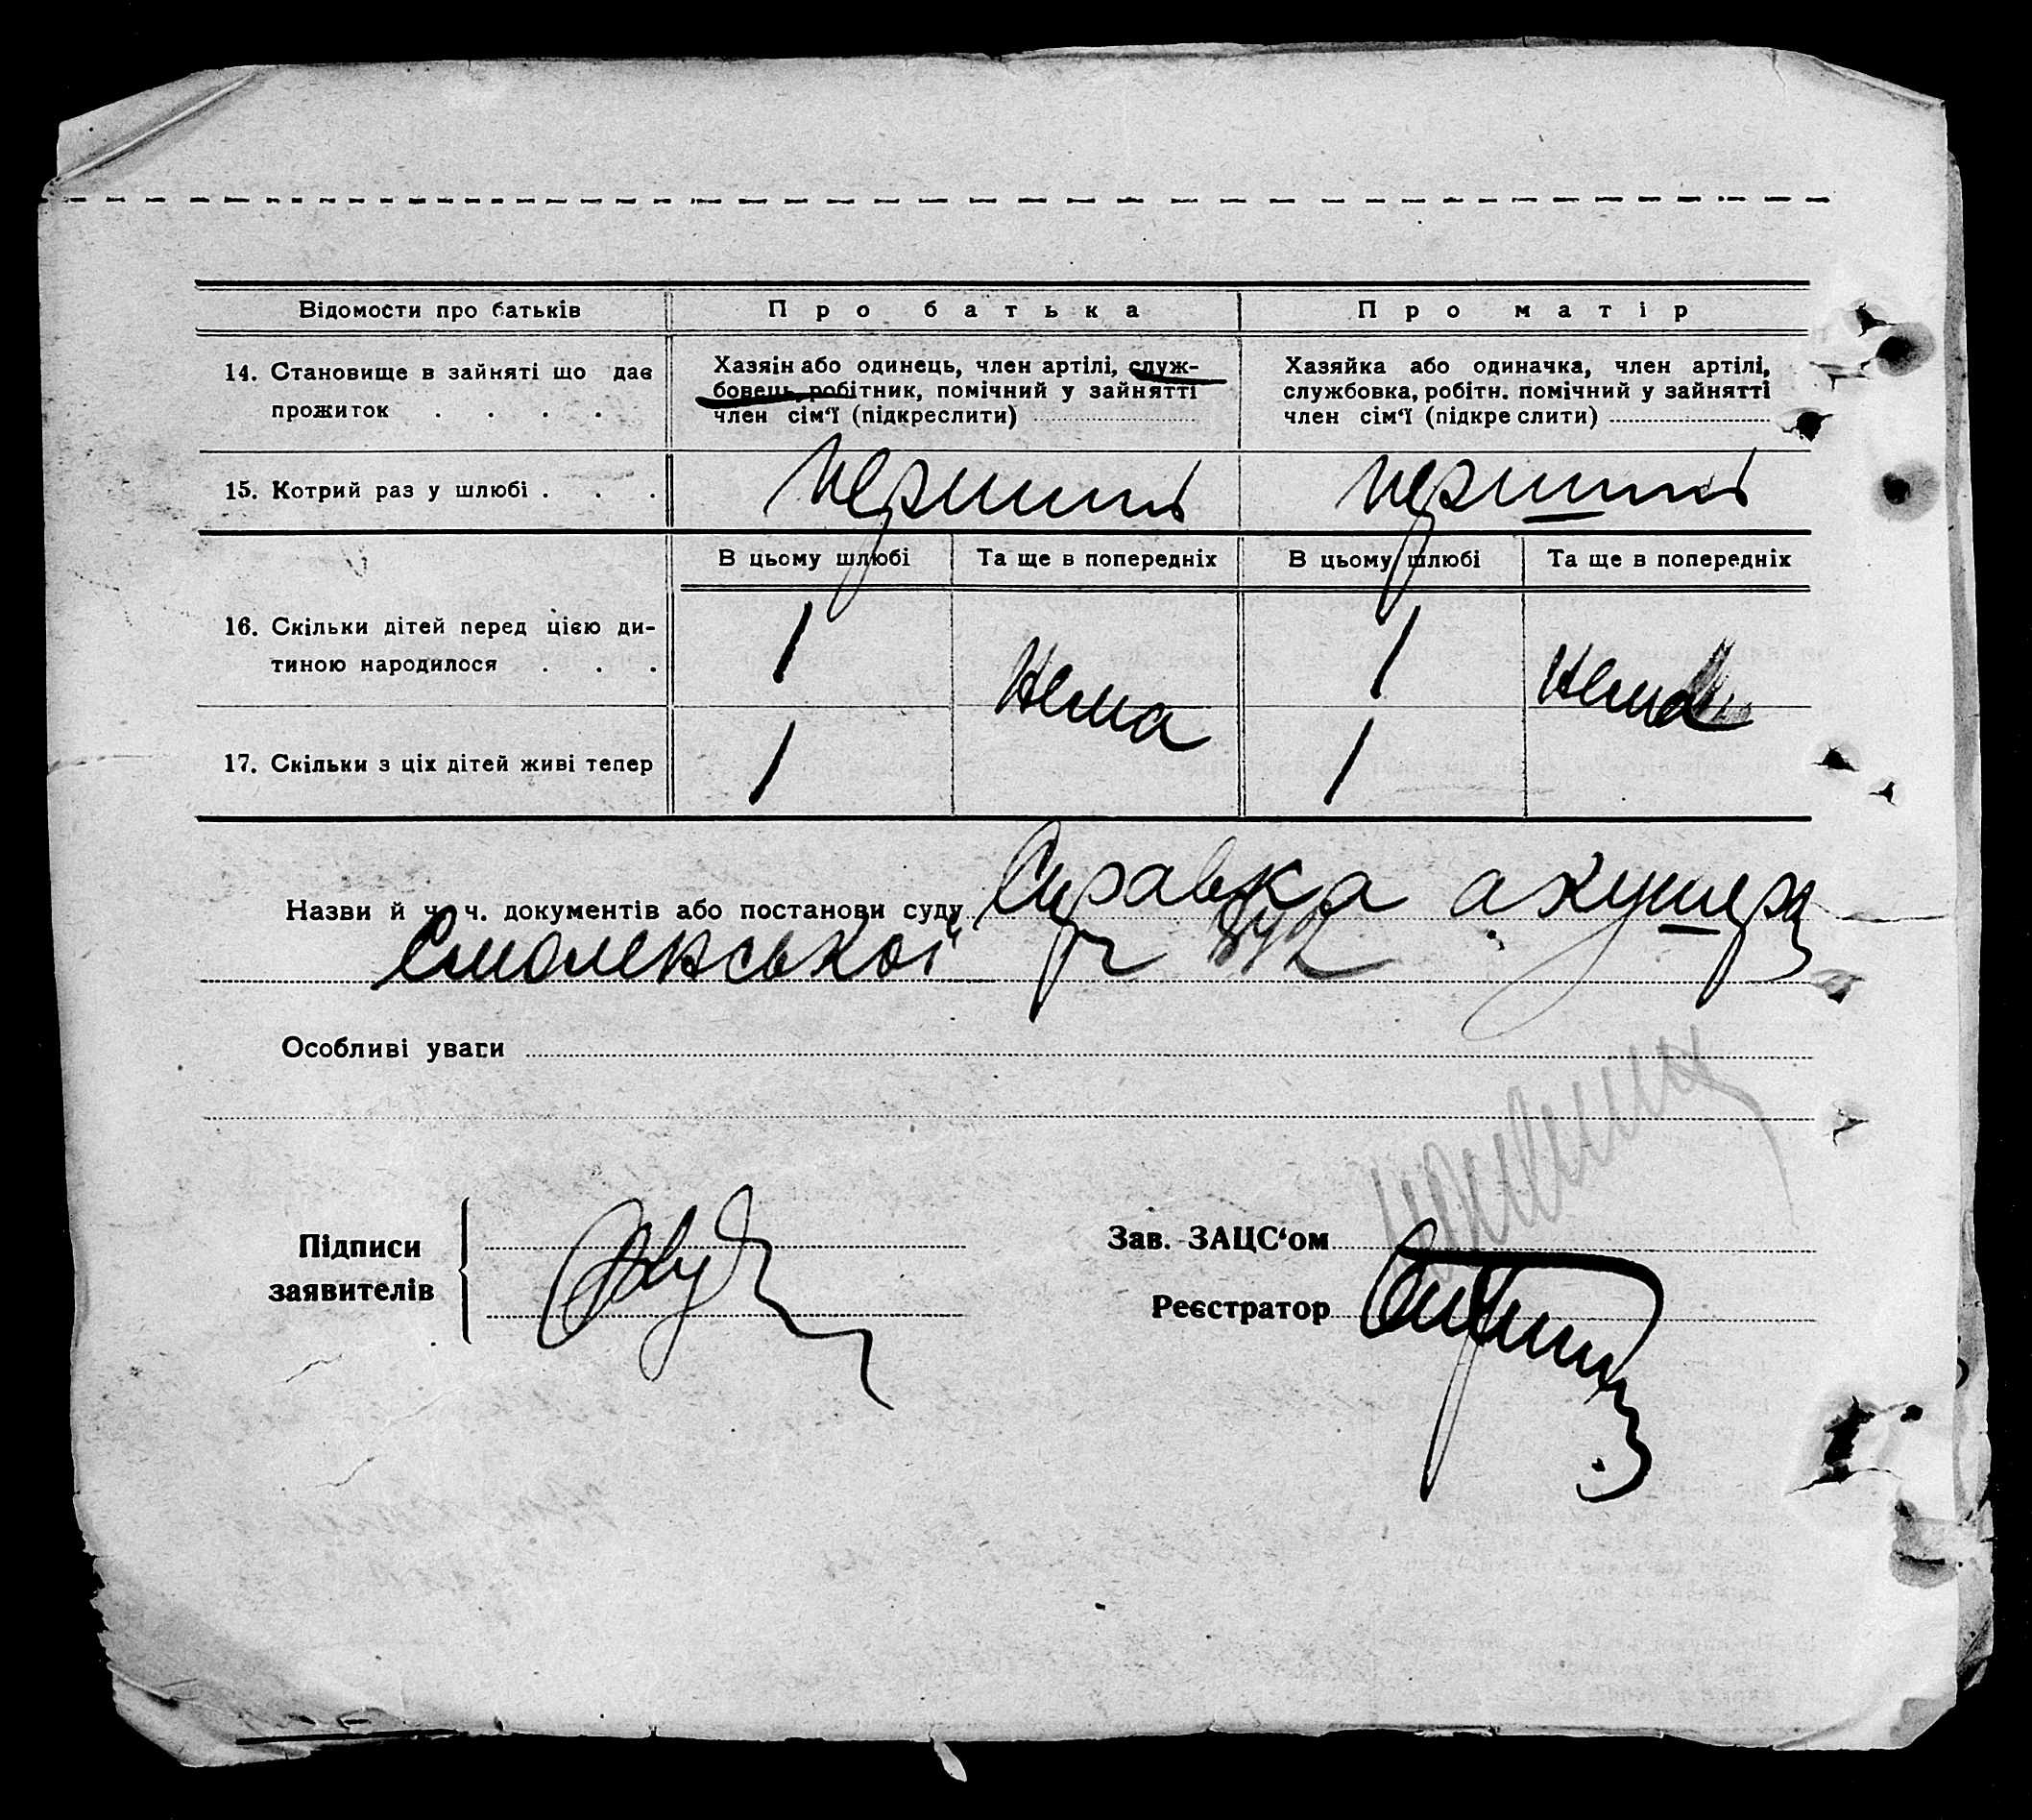 Відомости про батьків
Про батька
Про матір
14. Становище в зайняті що дає
прожиток . . . .
Хазяін або одинець, член артілі, служ-
бовець, робітник, помічний у зайнятті
член сім‘ї (підкреслити)
Хазяйка або одиначка, член артілі,
службовка, робітн. помічний у зайнятті
член сім‘ї (підкре слити)
15. Котрий раз у шлюбі . . .
перший
перший
В цьому шлюбі
Та ще в попередніх
В цьому шлюбі
Та ще в попередніх
16. Скільки дітей перед цією ди-
тиною народилося . . .
1
Нема
1
Нема
17. Скільки з ціх дітей живі тепер
1
1
Назви й ч. ч. документів або постанови суду Справка акушера
Смоленської
Особливі уваги
Підписи
заявителів
Зав. ЗАЦС‘ом
Реєстратор